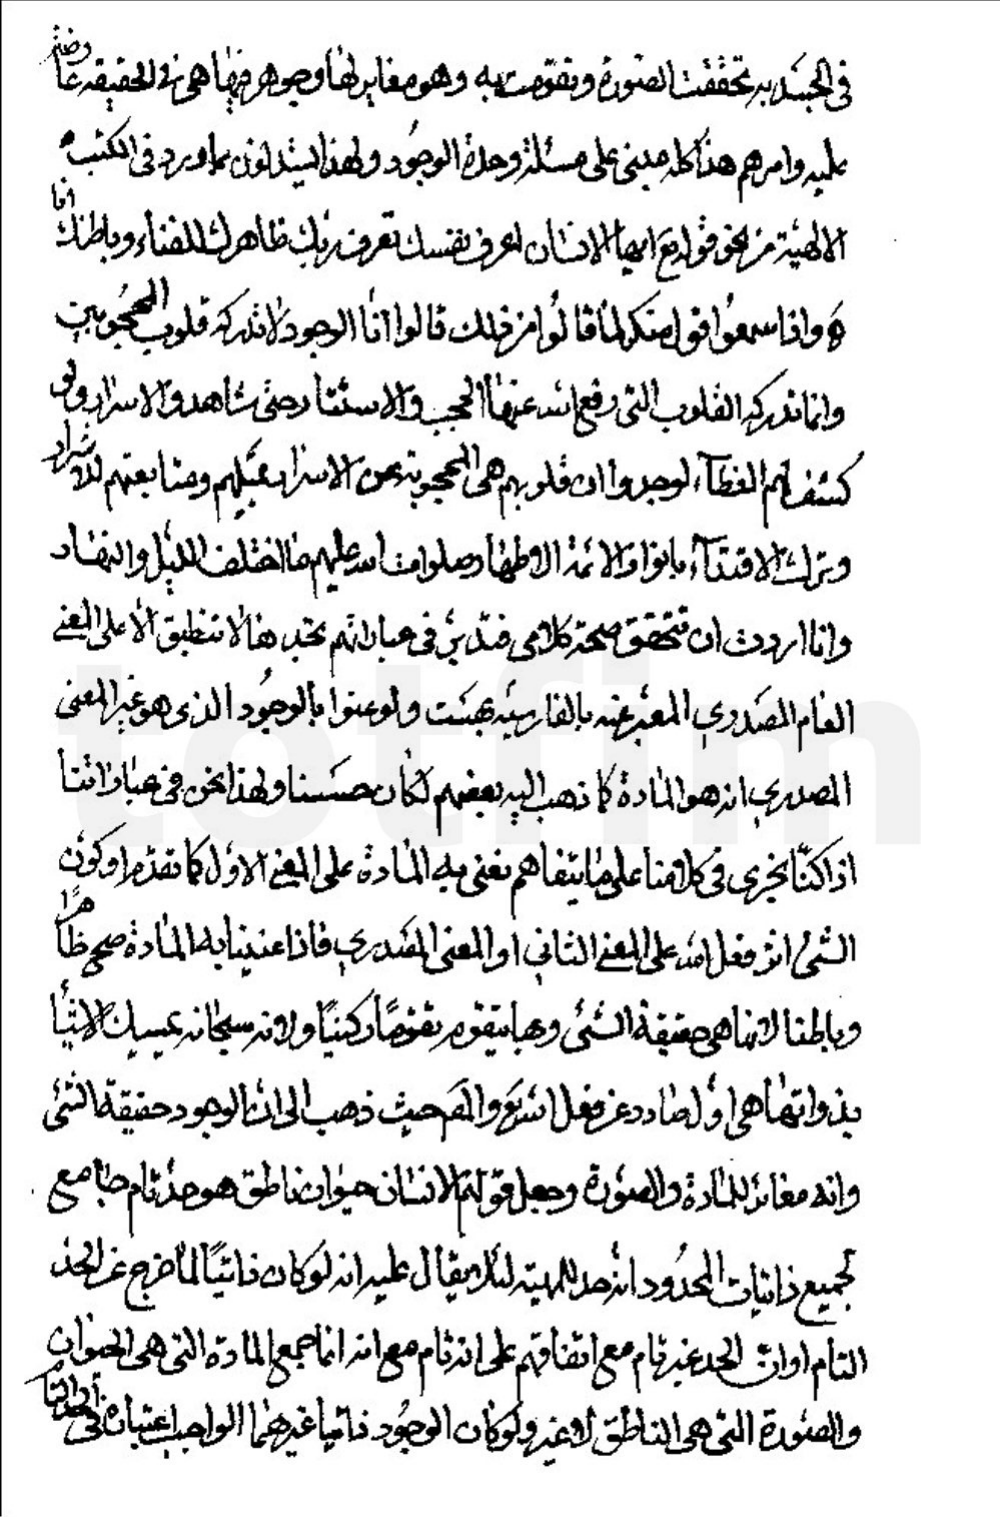 في الجسد به تحققت الصورة وتقومت به وهو مغاير لها وجوهر فيها هي في الحقيقة عارضة
عليه وامرهم هذا كله مبني على مسئلة وحدة الوجود ولهذا يستدلون بما ورد في الكتب
الالهية من نحو قوله تع ايها الانسان اعرف نفسك تعرف ربك ظاهرك للفناء وباطنك انا
ه واذا سمعوا قول منكر لما قالوا من ذلك قالوا انا الوجود لا تدركه قلوب المحجوبين
وانما تدركه القلوب التي رفع الله عنها الحجب والاستتار حتى شاهدوا الاسرار ولو
كشف لهم الغطآء لوجدوا ان قلوبهم هي المحجوبة عن الاسرار بميلهم ومتابعتهم للاشرار
وترك الاقتدآء بانوار الائمة الاطهار صلوات الله عليهم ما اختلف الليل والنهار
واذا اردت ان تتحقق صحة كلامي فتدبر في عباراتهم تجدها لا تنطبق الا على المعنى
العام المصدري المعبر عنه بالفارسية بهست ولو عنوا بالوجود الذي هو غير المعنى
المصدري انه هو المادة كما ذهب اليه بعضهم لكان حسنا ولهذا نحن في عباراتنا
اذا كنا نجري في كلامنا على ما يتفاهم نعني به المادة على المعنى الاول كما تقدم او كون
الشئ اثر فعل الله على المعنى الثاني او المعنى المصدري فاذا عنينا به المادة صح ظاهرا
وباطنا لانها هي حقيقة الشئ وبها يتقوم تقوما ركنيا ولانه سبحانه يمسك الاشيآء
بذواتها هي اول صادر عن فعل الله تع والمص حيث ذهب الى ان الوجود حقيقة الشئ
وانه مغائر للمادة والصورة وجعل قولهم الانسان حيوان ناطق هو حد تام جامع
لجميع ذاتيات المحدود انه حد للمهية لئلا يقال عليه انه لو كان ذاتيا لما خرج عن الحد
التام او ان الحد غير تام مع اتفاقهم على انه تام مع انه انما جمع المادة التي هي الحيوان
والصورة التي هي الناطق لا غير ولو كان الوجود ذاتيا غيرهما لوجب اعتباره في
totfim